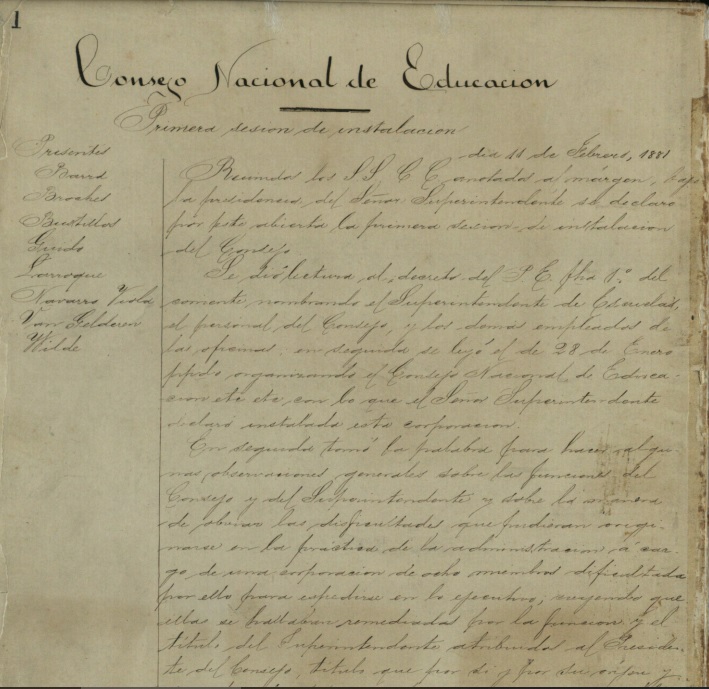 1
Consejo Nacional de Educacion
Primera sesion de instalacion
dia 11 de Febrero, 1881
Presentes
Barra
Broches
Bustillos
Guido
Larroque
Navarro Viola
Van Gelderen
Wilde
Reunidos los SS. C C. anotados al margen, bajo
la presidencia del Señor Superintendente se declaró
por este abierta la primera sesion de instalacion
del Consejo
Se dió lectura al decreto del P. E. fha 1º del
corriente, nombrando el Superintendente de Escuelas,
el personal del Consejo, y los demas empleados de
las oficinas; en seguida se leyó el de 28 de Enero
ppdo organizando el Consejo Nacional de Educa-
cion etc etc con lo que el Señor Superinten-dente
declaró instalada esta corporacion.
En seguida tomó la palabra para hacer algu-
nas observaciones generales sobre las funciones del
Consejo y del Superintendente y sobre la manera
de obviar las dificultades que pudieran origi-
narse en la práctica de la administracion á car-
go de una corporacion de ocho miembros dificultada
por ello para espedirse en lo ejecutivo, creyendo que
ellas se hallaban remediadas por la funcion y el
título del Superintendente atribuida al Presiden-
te del Consejo, título que por si y por su orijen y